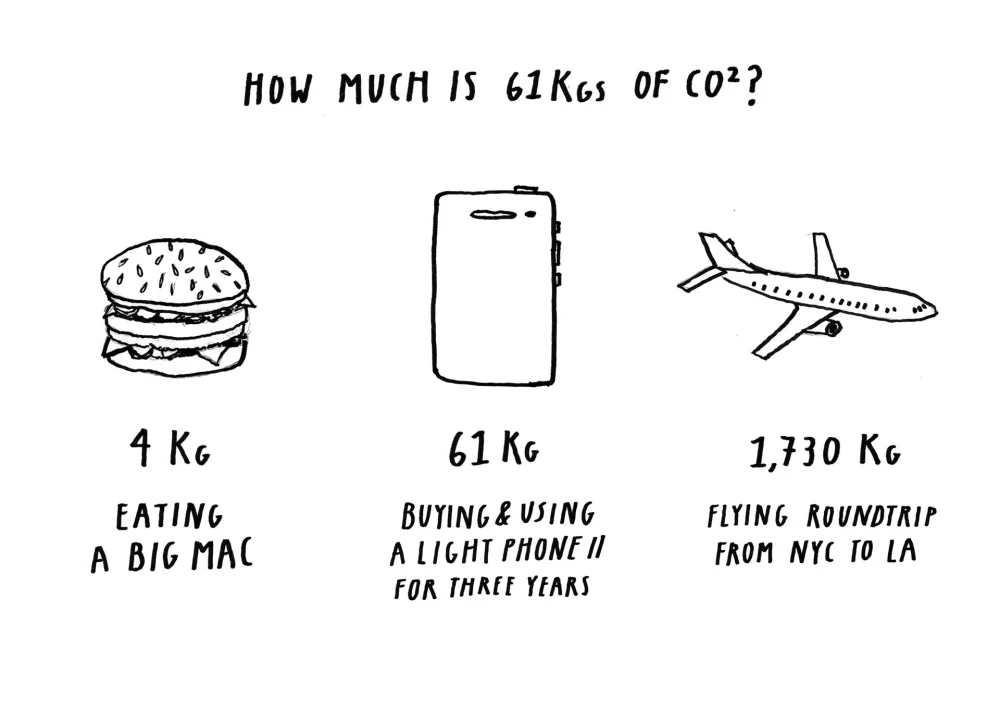 HOW MUCH IS 61KGS OF CO²?
4 KG
EATING
A BIG MAC
61 KG
BUYING & USING
A LIGHT PHONE II
FOR THREE YEARS
1,730 KG
FLYING ROUNDTRIP
FROM NYC TO LA